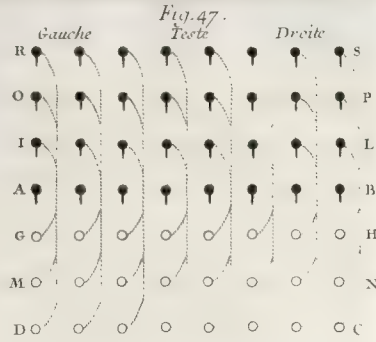 Fig. 47.
Gauche Teste Droite
R S
O P
I L
A B
G H
M N
D C